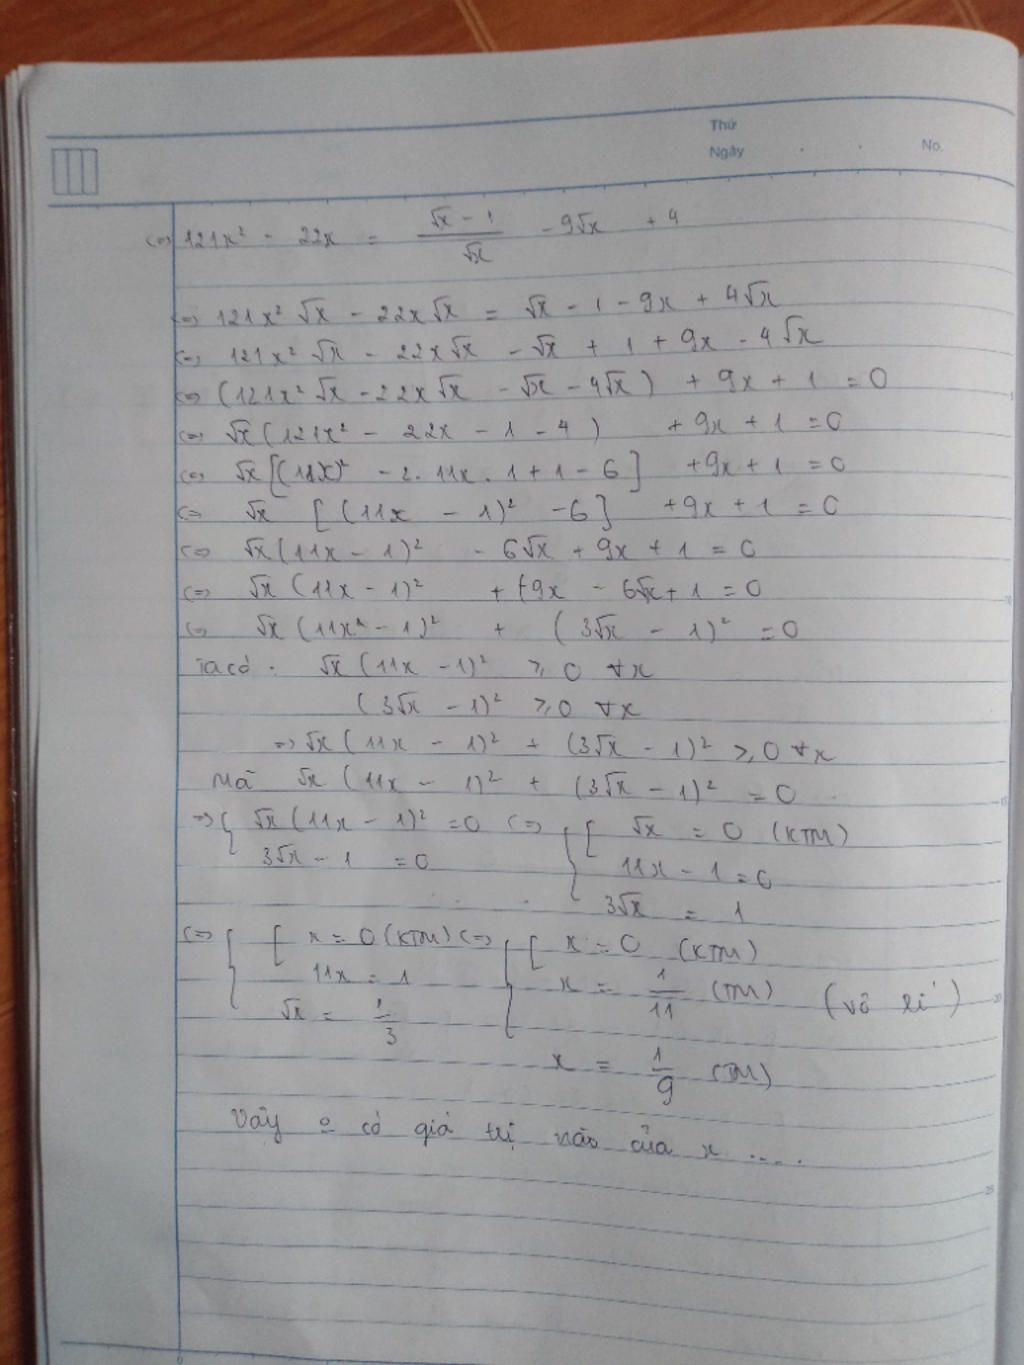 Thứ
Ngày . . No.
(=) 121x² - 22x = (√x - 1)/√x - 9√x + 4
(=) 121x²√x - 22x√x = √x - 1 - 9x + 4√x
(=) 121x²√x - 22x√x - √x + 1 + 9x - 4√x
(=) (121x²√x - 22x√x - √x - 4√x) + 9x + 1 = 0
(=) √x(121x² - 22x - 1 - 4) + 9x + 1 = 0
(=) √x[(11x)² - 2.11x.1 + 1 - 6] + 9x + 1 = 0
(=) √x [(11x - 1)² - 6] + 9x + 1 = 0
(=) √x(11x - 1)² - 6√x + 9x + 1 = 0
(=) √x(11x - 1)² + (9x - 6√x + 1 = 0
(=) √x(11x - 1)² + (3√x - 1)² = 0
Ta có: √x(11x - 1)² ⩾ 0 ∀x
(3√x - 1)² ⩾ 0 ∀x
=> √x(11x - 1)² + (3√x - 1)² ⩾ 0 ∀x
Mà √x(11x - 1)² + (3√x - 1)² = 0
=> { √x(11x - 1)² = 0 (=) { [ √x = 0 (KTM)
3√x - 1 = 0 11x - 1 = 0
3√x = 1
(=) { [ x = 0 (KTM) (=) { [ x = 0 (KTM)
11x = 1 x = 1/11 (TM) (vô lí)
√x = 1/3
x = 1/9 (TM)
Vậy o có giá trị nào của x ....